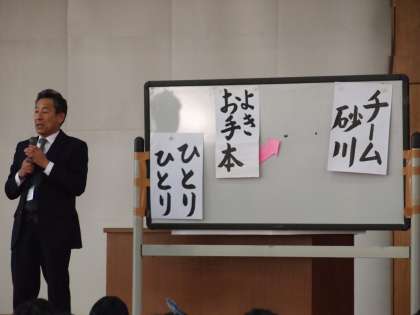 チーム
砂川
よき
お手本
ひとり
ひとり